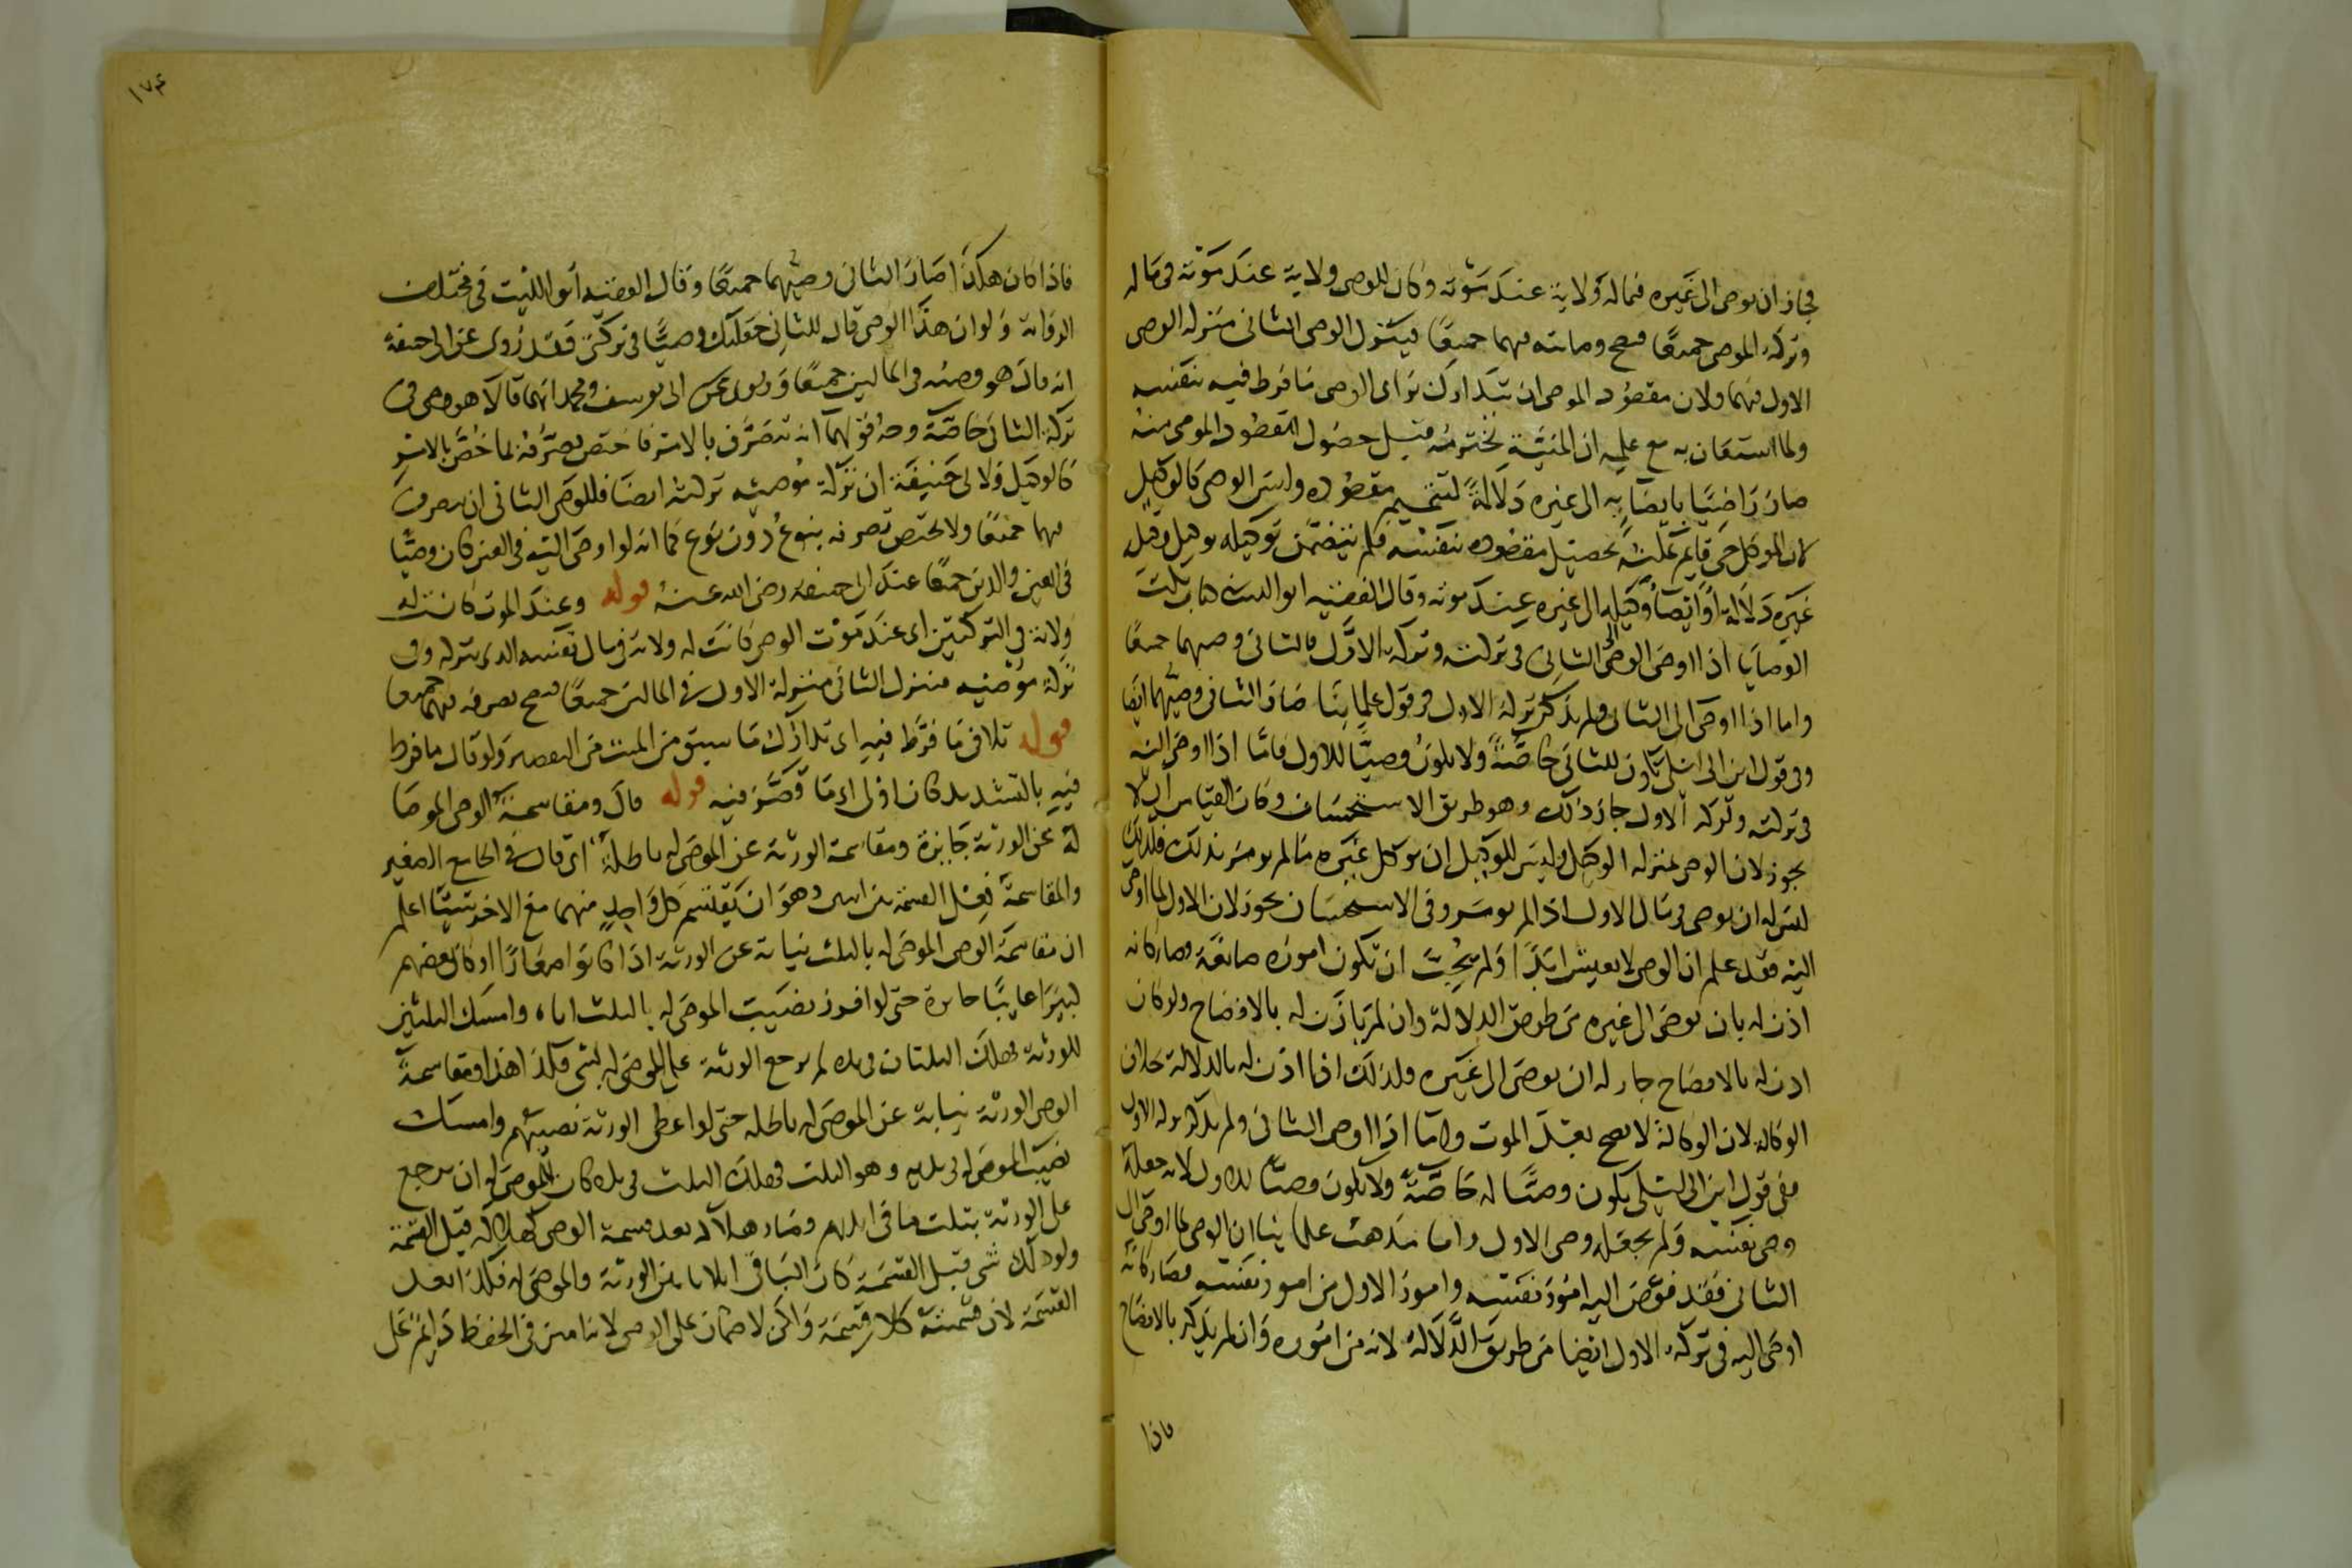 فجاز ان يوصى الى غيره فيما له ولاية عند موته وكان للوصى ولاية عند موته فى ماله
وتركة الموصى جميعا فصح وصايته فيهما جميعا فينزل الوصى الثانى منزلة الوصى
الاول فيهما ولان مقصود الموصى ان يتدارك براى الوصى ما فرط فيه بنفسه
ولما استعان به مع علمه ان المنية تخترمه قبل حصول المقصود الموصى منه
صار راضيا بايصائه الى غيره دلالة لتتميم مقصوده وليس الوصى كالوكيل
لان الموكل حى قايم يمكنه تحصيل مقصوده بنفسه فلم يتضمن توكيله توكيل وكيله
غيره دلالة او ايصا وكيله الى غيره عند موته وقال الفقيه ابو الليث فى كتاب نكت
الوصايا اذا اوصى الوصى الى الثانى فى تركته وتركة الاول فالثانى وصيهما جميعا
واما اذا اوصى الى الثانى ولم يذكر تركة الاول فى قول علمائنا صار الثانى وصيهما ايضا
وفى قول ابن ابى ليلى يكون للثانى خاصة ولا يكون وصيا للاول فاما اذا اوصى اليه
فى تركته وتركة الاول جاز ذلك وهو طريق الاستحسان وكان القياس ان لا
يجوز لان الوصى بمنزلة الوكيل وليس للوكيل ان يوكل غيره ما لم يومر بذلك فكذلك
ليس له ان يوصى فى مال الاول اذا لم يومر وفى الاستحسان يجوز لان الاول لما اوصى
اليه فقد علم ان الوصى لا يعيش ابدا ولم يحب ان تكون اموره ضائعة فصار كانه
اذن له بان يوصى الى غيره من طريق الدلالة وان لم ياذن له بالافصاح ولو كان
اذن له بالافصاح جاز له ان يوصى الى غيره ولذلك اذا اذن له بالدلالة بخلاف
الوكالة لان الوكالة لا تصح بعد الموت واما اذا اوصى الثانى ولم يذكر تركة الاول
ففى قول ابن ابى ليلى يكون وصيا له خاصة ولا يكون وصيا للاول لانه جعله
وصى نفسه ولم يجعله وصى الاول واما مذهب علمائنا ان الوصى لما اوصى الى
الثانى فقد فوض اليه امور نفسه وامور الاول من امور نفسه فصار كانه
اوصى اليه فى تركة الاول ايضا من طريق الدلالة لانه من اموره وان لم يذكره بالافصاح
فاذا
١٧٤
فاذا كان هكذا صار الثانى وصيهما جميعا وقال الفقيه ابو الليث فى مختلف
الرواية ولو ان هذا الوصى قال للثانى جعلتك وصيا فى تركتى فقد روى عن ابى حنيفة
انه قال هو وصيه فى المالين جميعا وروى عن ابى يوسف ومحمد انهما قالا هو وصى فى
تركة الثانى خاصة وجه قولهما انه تصرف بالامر فاختص تصرفه بما خص بالامر
كالوكيل ولابى حنيفة ان تركة موصيه تركته ايضا فللوصى الثانى ان يتصرف
فيهما جميعا ولا يختص تصرفه بنوع دون نوع كما انه لو اوصى اليه فى العين كان وصيا
فى العين والدين جميعا عند ابى حنيفة رضى الله عنه قوله وعند الموت كانت له
ولاية فى التركتين اى عند موت الوصى كانت له ولاية فى مال نفسه الذى يتركه وفى
تركة موصيه فينزل الثانى منزلة الاول فى المالين جميعا فصح تصرفه فيهما جميعا
قوله تلافى ما فرط فيه اى تدارك ما سبق من الميت من التقصير ولو قال ما فرط
فيه بالتشديد كان اولى اى ما قصر فيه قوله قال ومقاسمة الوصى الموصا
له عن الورثة جائزة ومقاسمة الورثة عن الموصى له باطلة اى قال فى الجامع الصغير
والمقاسمة فعل القسمة بين اثنين وهو ان يقتسم كل واحد منهما مع الاخر شيئا اعلم
ان مقاسمة الوصى الموصى له بالثلث نيابة عن الورثة اذا كانوا صغارا او كان بعضهم
كبيرا غائبا جائزة حتى لو افرز نصيب الموصى له بالثلث اياه وامسك الثلثين
للورثة فهلك الثلثان فى يده لم يرجع الورثة على الموصى له بشى فكذا هذا ومقاسمة
الوصى الورثة نيابة عن الموصى له باطلة حتى لو اعطى الورثة نصيبهم وامسك
نصيب الموصى له فى يديه وهو الثلث فهلك الثلث فى يده كان للموصى له ان يرجع
على الورثة بثلث ما فى ايديهم وصار هلاكه بعد قسمة الوصى كهلاكه قبل القسمة
ولو هلك شى قبل القسمة كان الباقى اثلاثا بين الورثة والموصى له فكذا بعد
القسمة لان قسمته كلا قسمة ولكن لا ضمان على الوصى لانه امين فى الحفظ